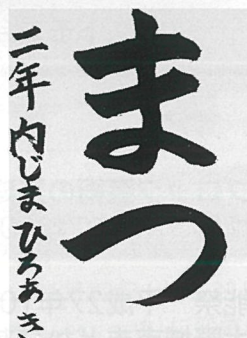 まつ
二年 内じまひろあき